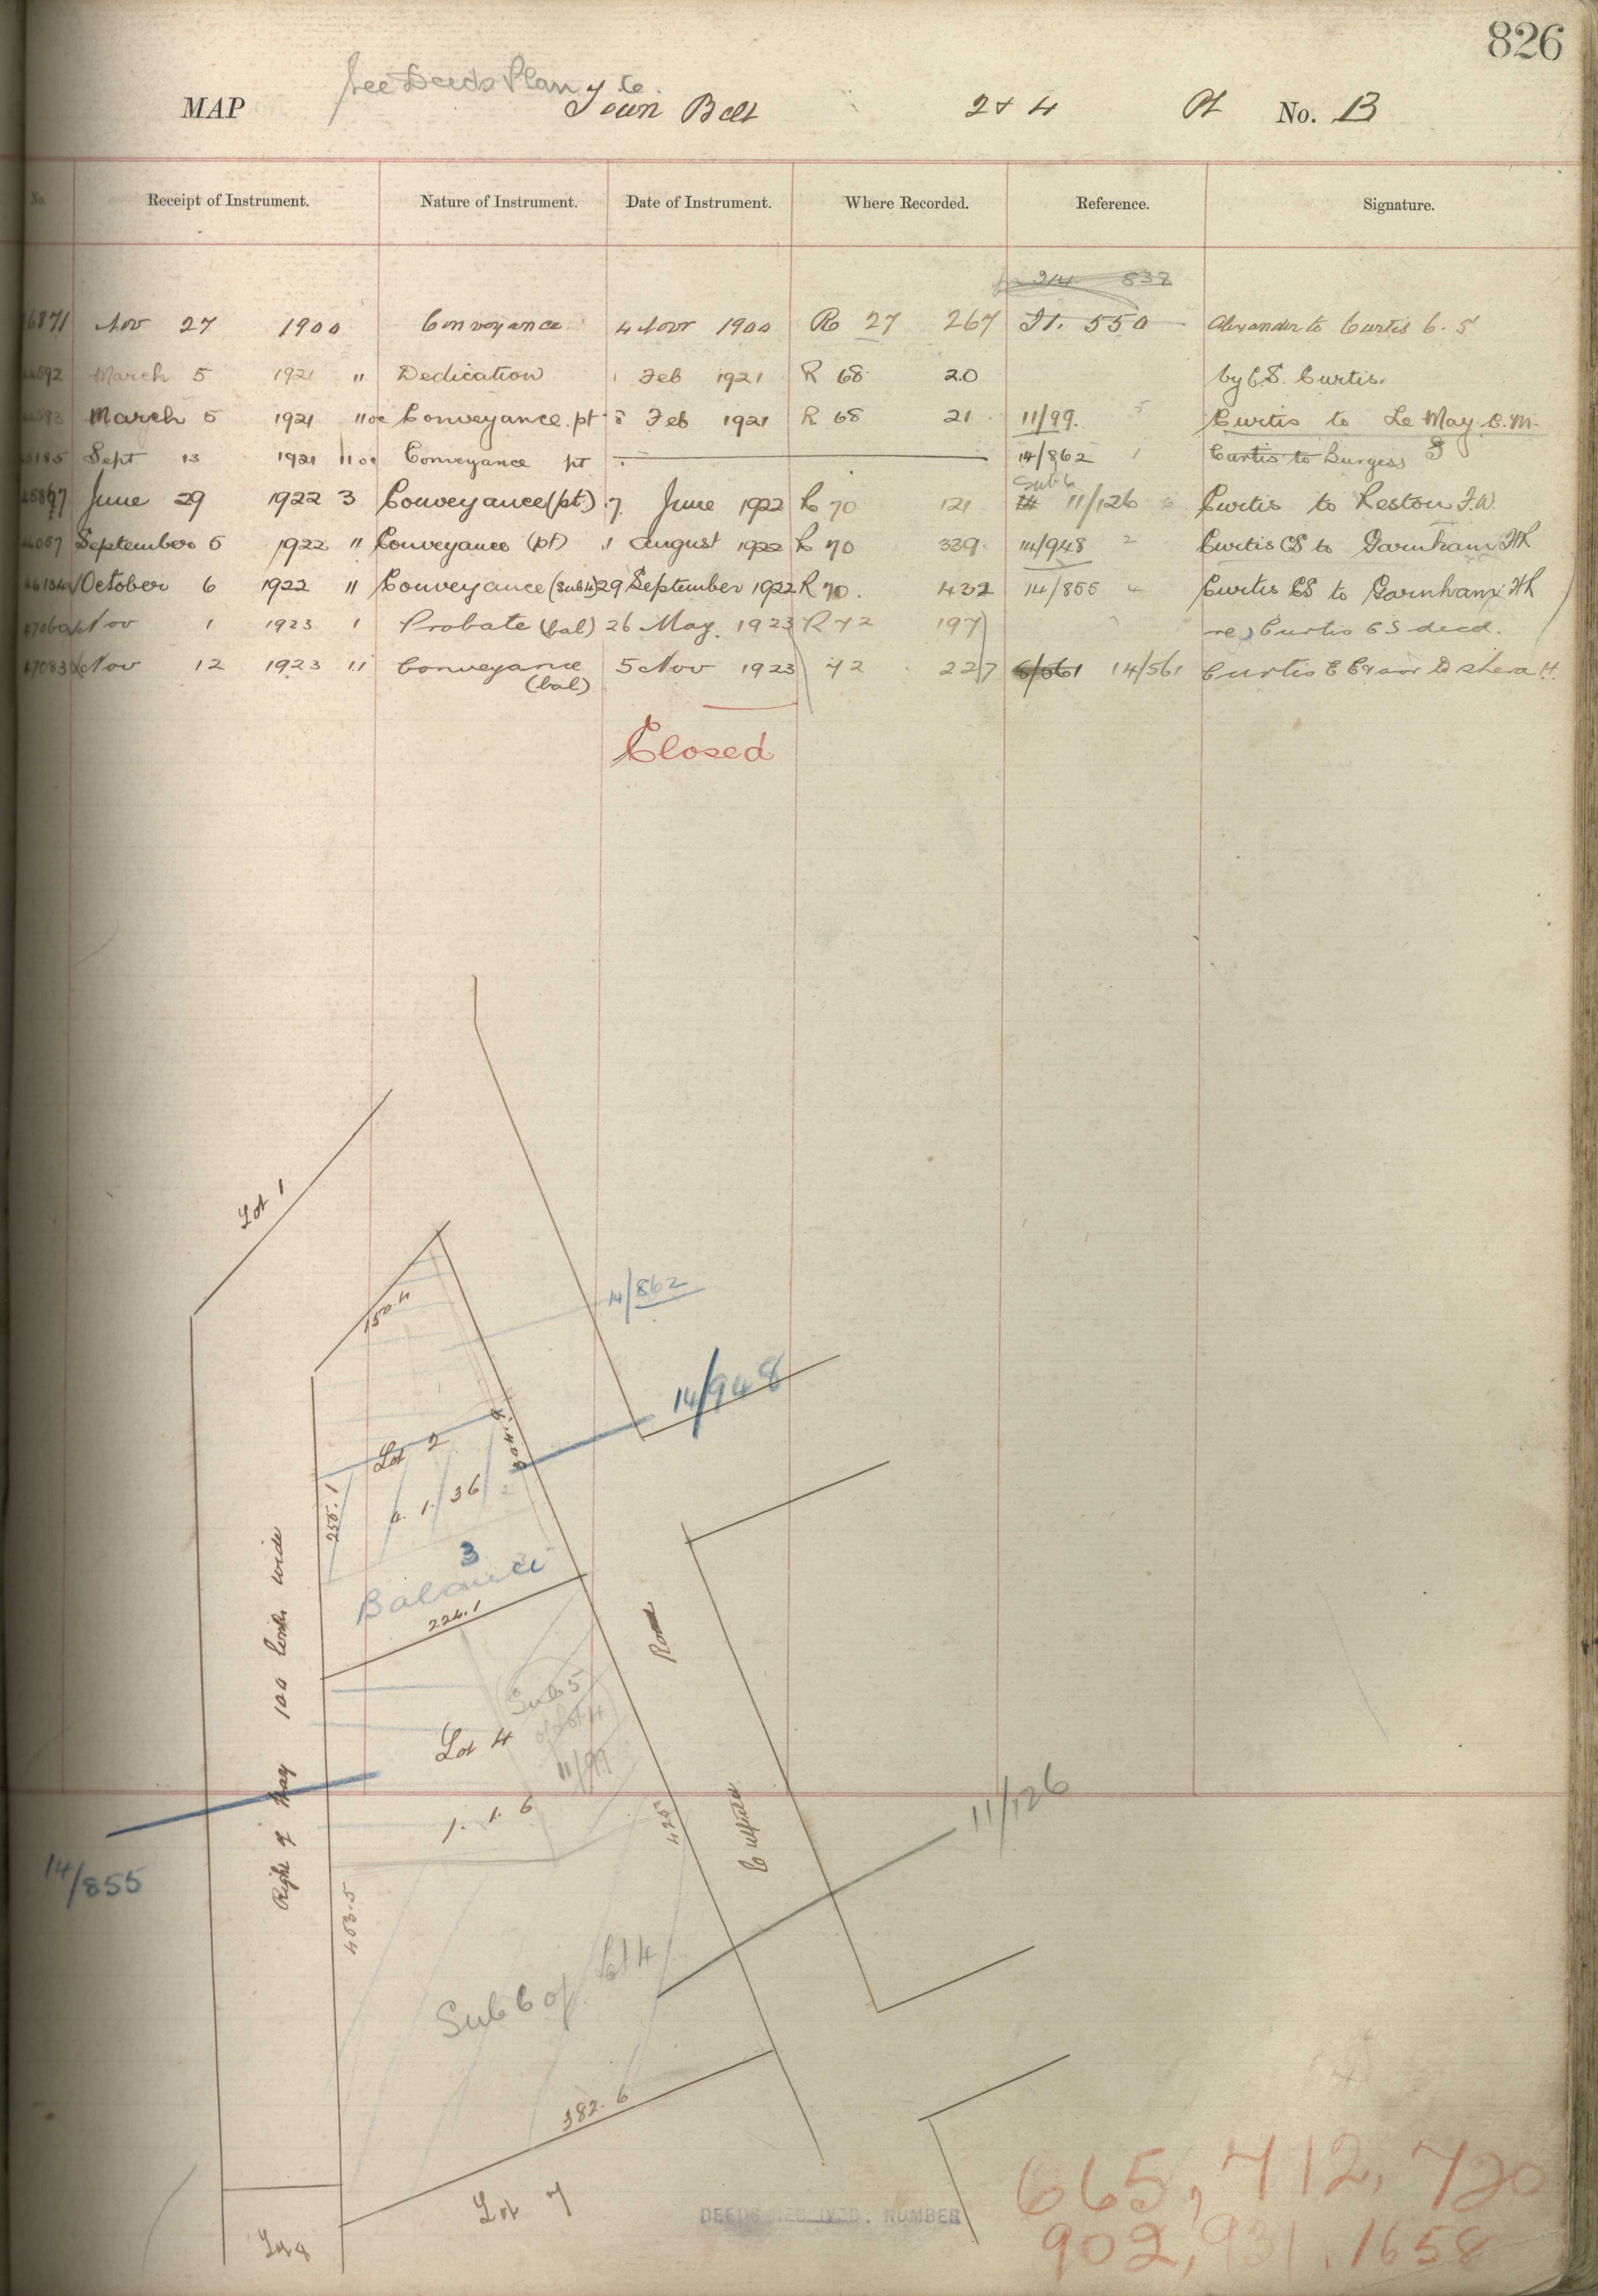 826
See Deeds Plan 76.
MAP Town Belt 2 & 4 Pt No. B
No. Receipt of Instrument. Nature of Instrument. Date of Instrument. Where Recorded. Reference. Signature.
214 837
6871 Nov 27 1900 Conveyance 4 Nov 1900 R 27 267 Jl. 550 Alexander to Curtis C. S
592 March 5 1921 11 Dedication 1 Feb 1921 R 68 20 by C.S. Curtis.
593 March 5 1921 11 oc Conveyance. pt 8 Feb 1921 R 68 21 11/99. 5 Curtis to Le May C.M.
5185 Sept 13 1921 11 oc Conveyance pt 14/862 1 Curtis to Burgess J
Sub 6
5867 June 29 1922 3 Conveyance (pt.) 7 June 1922 R 70 121 11/126 6 Curtis to Reston F.W.
6067 September 5 1922 11 Conveyance (pt) 1 August 1922 R 70 339 14/948 2 Curtis CS to Garnham FH
46134 October 6 1922 11 Conveyance (Sub 4) 29 September 1922 R 70. 432 14/855 4 Curtis CS to Garnham FH
47060 Nov 1 1923 1 Probate (bal) 26 May. 1923 R 72 197 re Curtis C S decd.
47083 Nov 12 1923 11 Conveyance 5 Nov 1923 72 227 6/561 14/561 Curtis C to Shera H.
(bal)
Closed
Lot 1
150.4
14/862
14/948
Lot 2
304.9
250.1
0. 1. 36
3
Balance
224.1
Right of Way 100 links wide
Road
Sub 5
of Lot 4
Lot 4
11/99
1. 1. 6
425
11/126
14/855
453.5
Sub 6 of Lot 4
382.6
Lot 7
Lot 8
DEEDS RECEIVED: NUMBER
665, 712, 720
902, 931, 1658